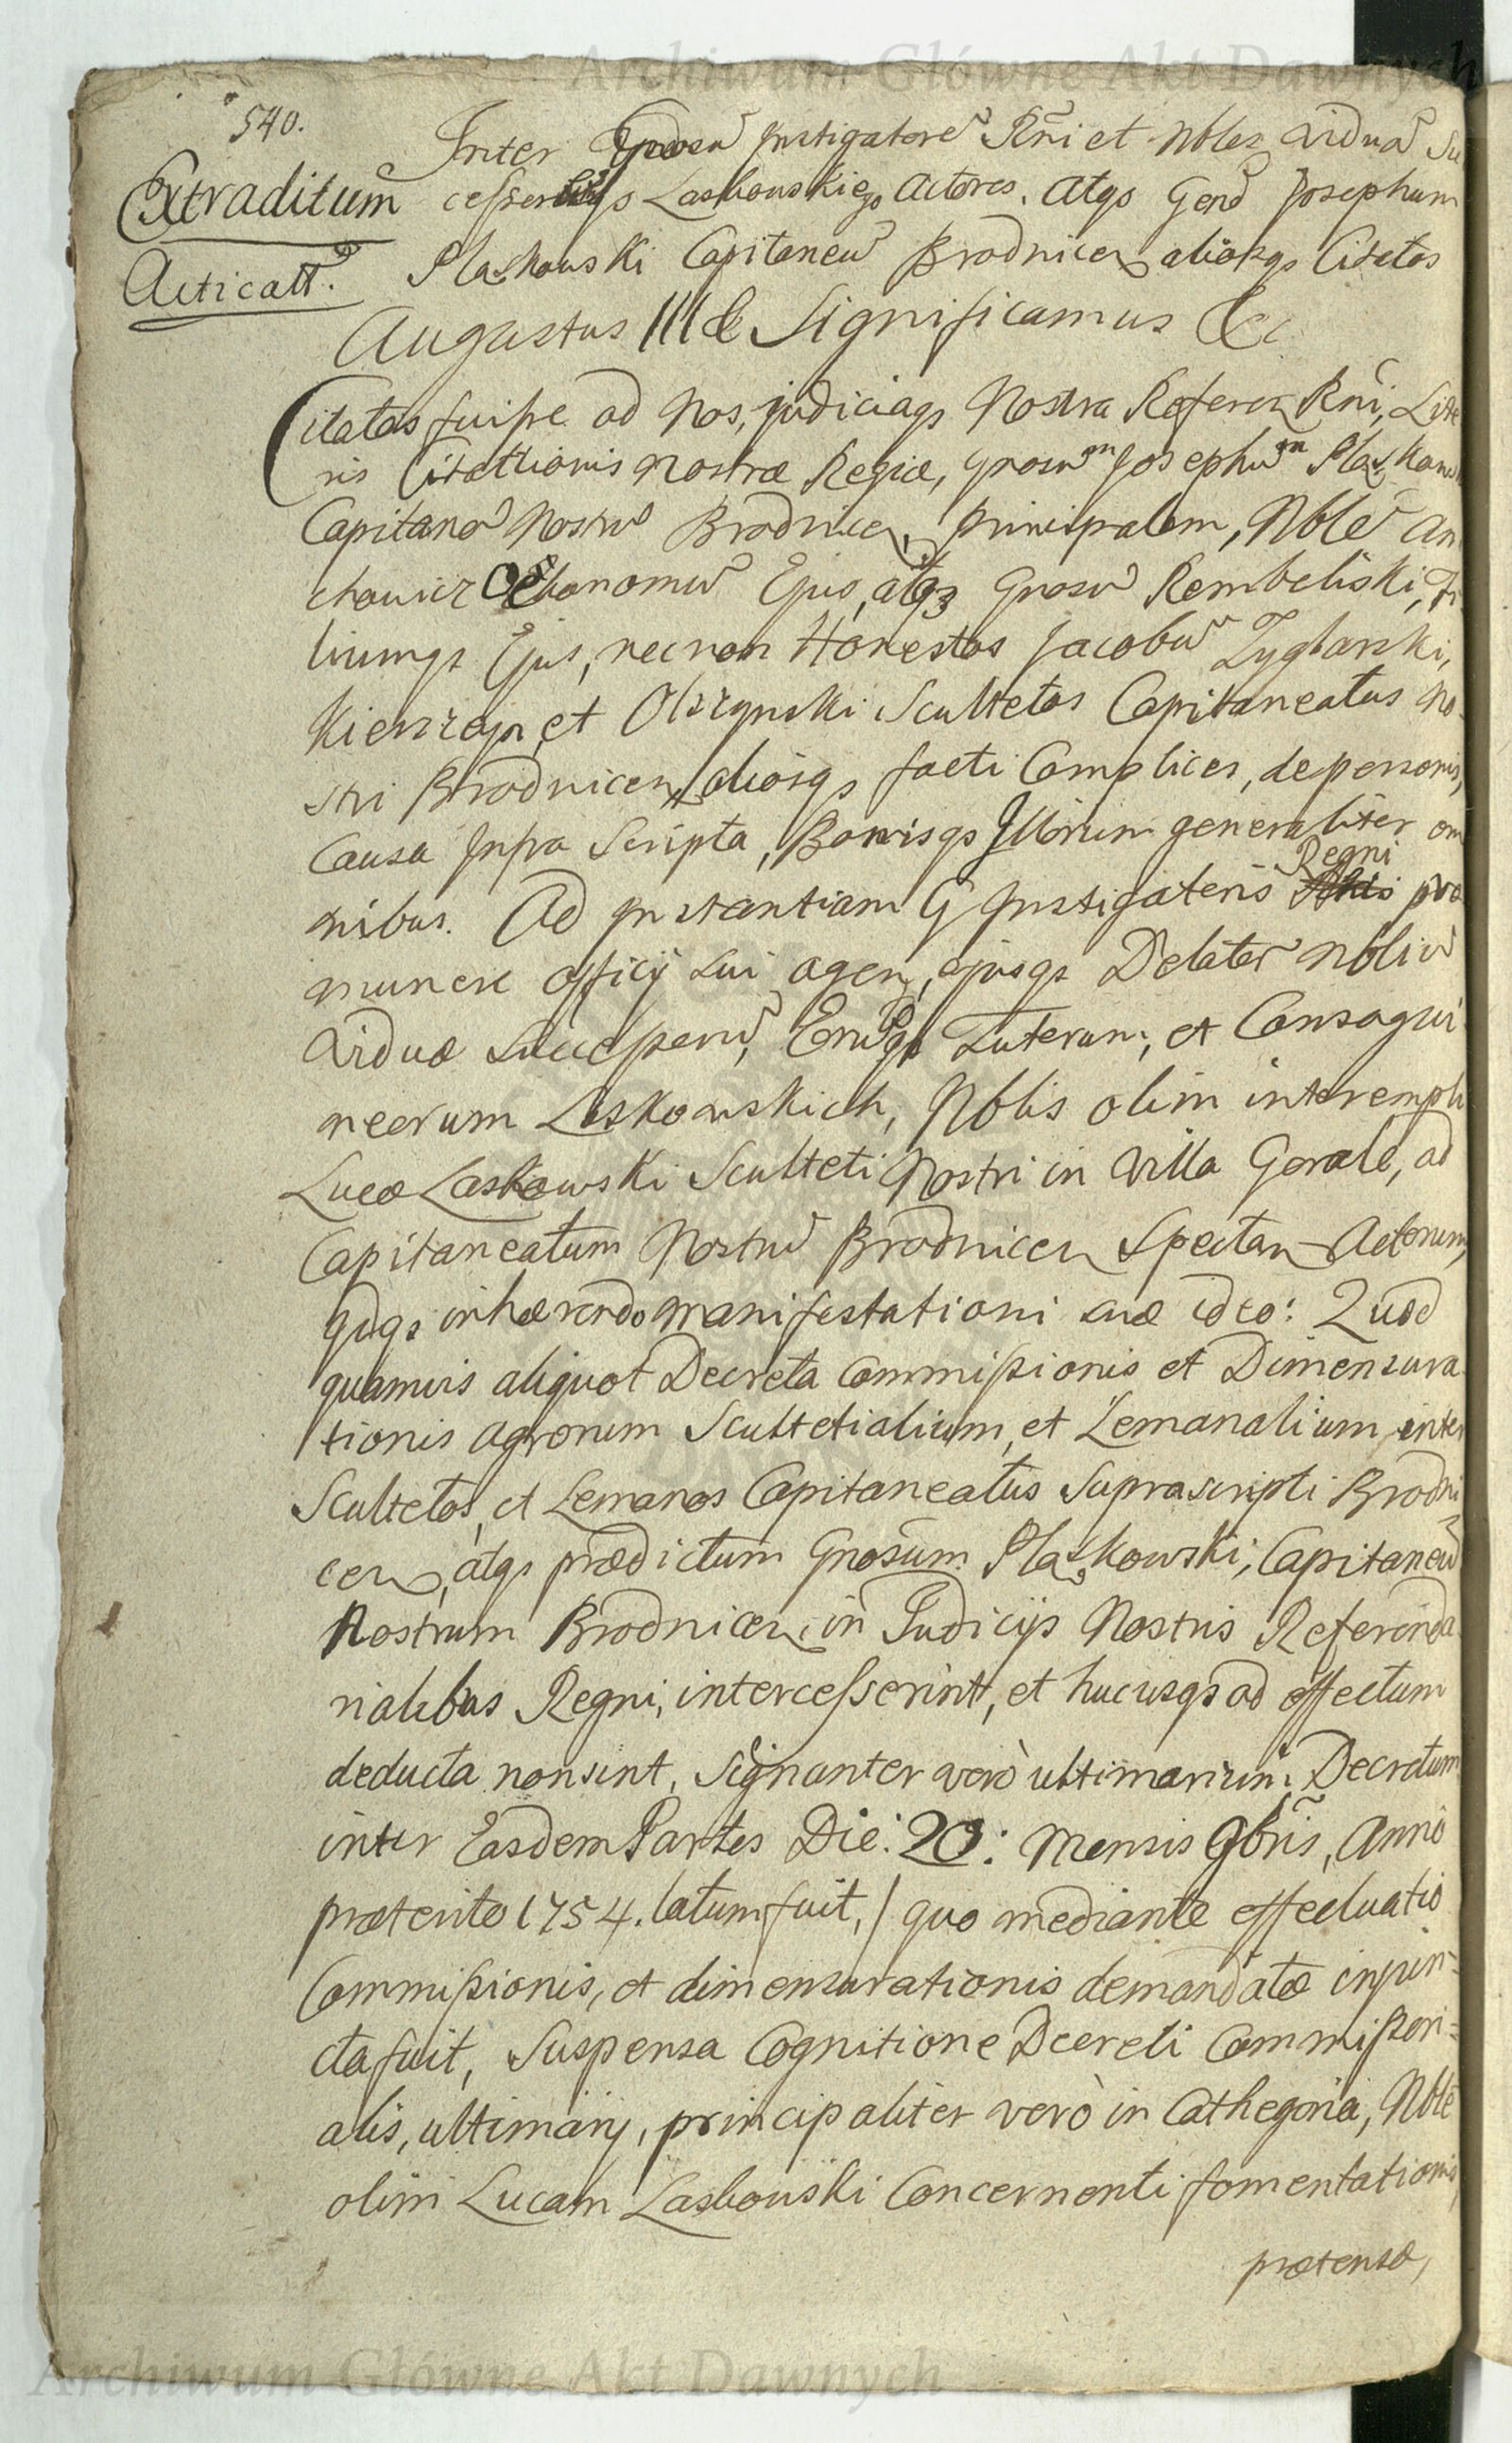 Archiwum Główne Akt Dawnych
540.
Extraditum
Acticatt.
Inter Instigatorē Rni et Nbles Viduā Su
cesser Laskowskiego Actores. Atqs Gend Josephum
Plaskowski Capitaneū Brodnicen aliosqs Citatos
Augustus III & Significamus &c
Citatos fuisse ad Nos, judiciaqs Nostra Referen Rni, Lite
ris Citattionis Nostræ Regiæ, Gnosum Josephum Plaskows
Capitanō Nostrū Brodnicen, principalem, Nblē An
chowicz Oekonomū Ejus, atqz Gnosū Rembeliski, Fi
liumqs Ejus, necnon Honestos Jacobū Zyglarski,
Kierszeyn, et Olszynski Scultetos Capitaneatus No
stri Brodnicen, aliosqs facti Complices, de personis,
Causa Infra Scripta, Bonisqs Illorum generaliter om
nibus. Ad Instantiam G Instigatoris Regni pro
munere officij sui agen, ejusqs Delator Nbliū
Viduæ Successorū, Erūqs Tutorum, et Consagui
neorum Laskowskich, Nblis olim interempti
Lucæ Laskowski Sculteti Nostri in Villa Gorale, ad
Capitaneatum Nostrū Brodnicen Spectan Actorum,
qdqs inhærendo manifestationi suæ ideo: Quod
quamvis aliquot Decreta Commissionis et Dimensura
tionis agrorum Scultetialium, et Lemanalium, inter
Scultetos, et Lemanos Capitaneatus Suprascripti Brodni
cen, atqs prædictum Gnosum Plaskowski, Capitaneū
Nostrum Brodnicen, in Judicijs Nostris Referenda
rialibus Regni, intercesserint, et hucusqs ad effectum
deducta non sint, Signanter verò ultimarium Decretum
inter Easdem Partes Die: 20: Mensis 9bris, Anno
præterito 1754. latum fuit, / quo mediante effectuatio
Commissionis, et dimensurationis demandatæ injun=
cta fuit, Suspensa Cognitione Decreti Commissori=
alis, ultimarij, principaliter verò in Cathegoria, Nblē
olim Lucam Laskowski Concernenti fomentationis
prætensæ,
Archiwum Główne Akt Dawnych